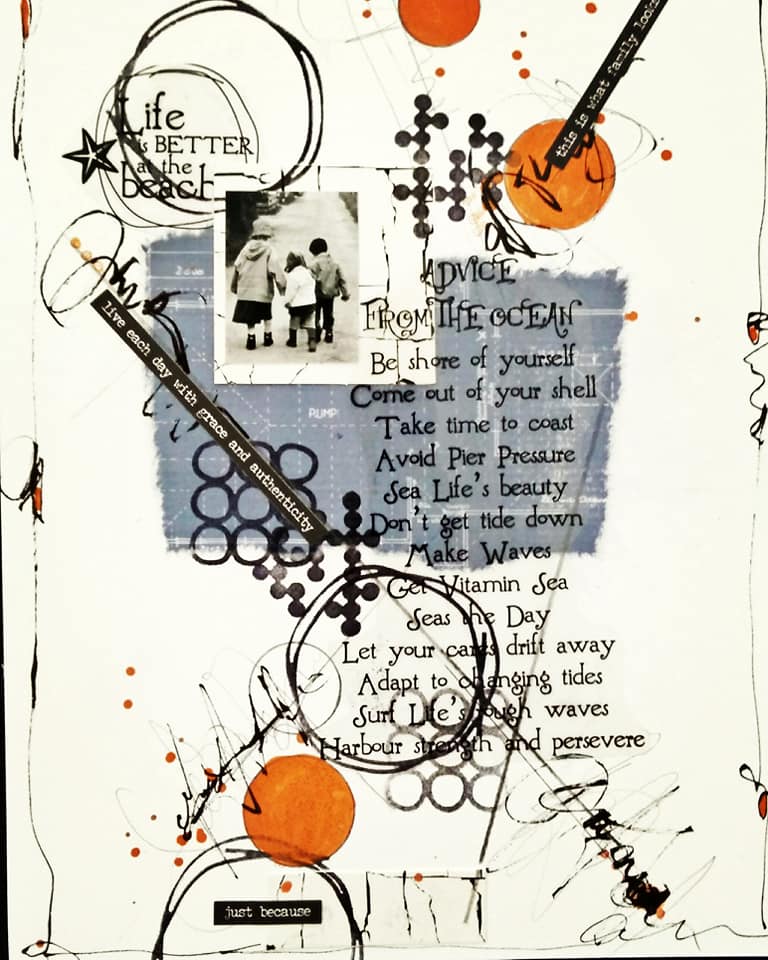 this is what family looks
Life
is BETTER
at the
beach
live each day with grace and authenticity
PUMP
ADVICE
FROM THE OCEAN
Be shore of yourself
Come out of your shell
Take time to coast
Avoid Pier Pressure
Sea Life's beauty
Don't get tide down
Make Waves
Get Vitamin Sea
Seas the Day
Let your cares drift away
Adapt to changing tides
Surf Life's rough waves
Harbour strength and persevere
just because